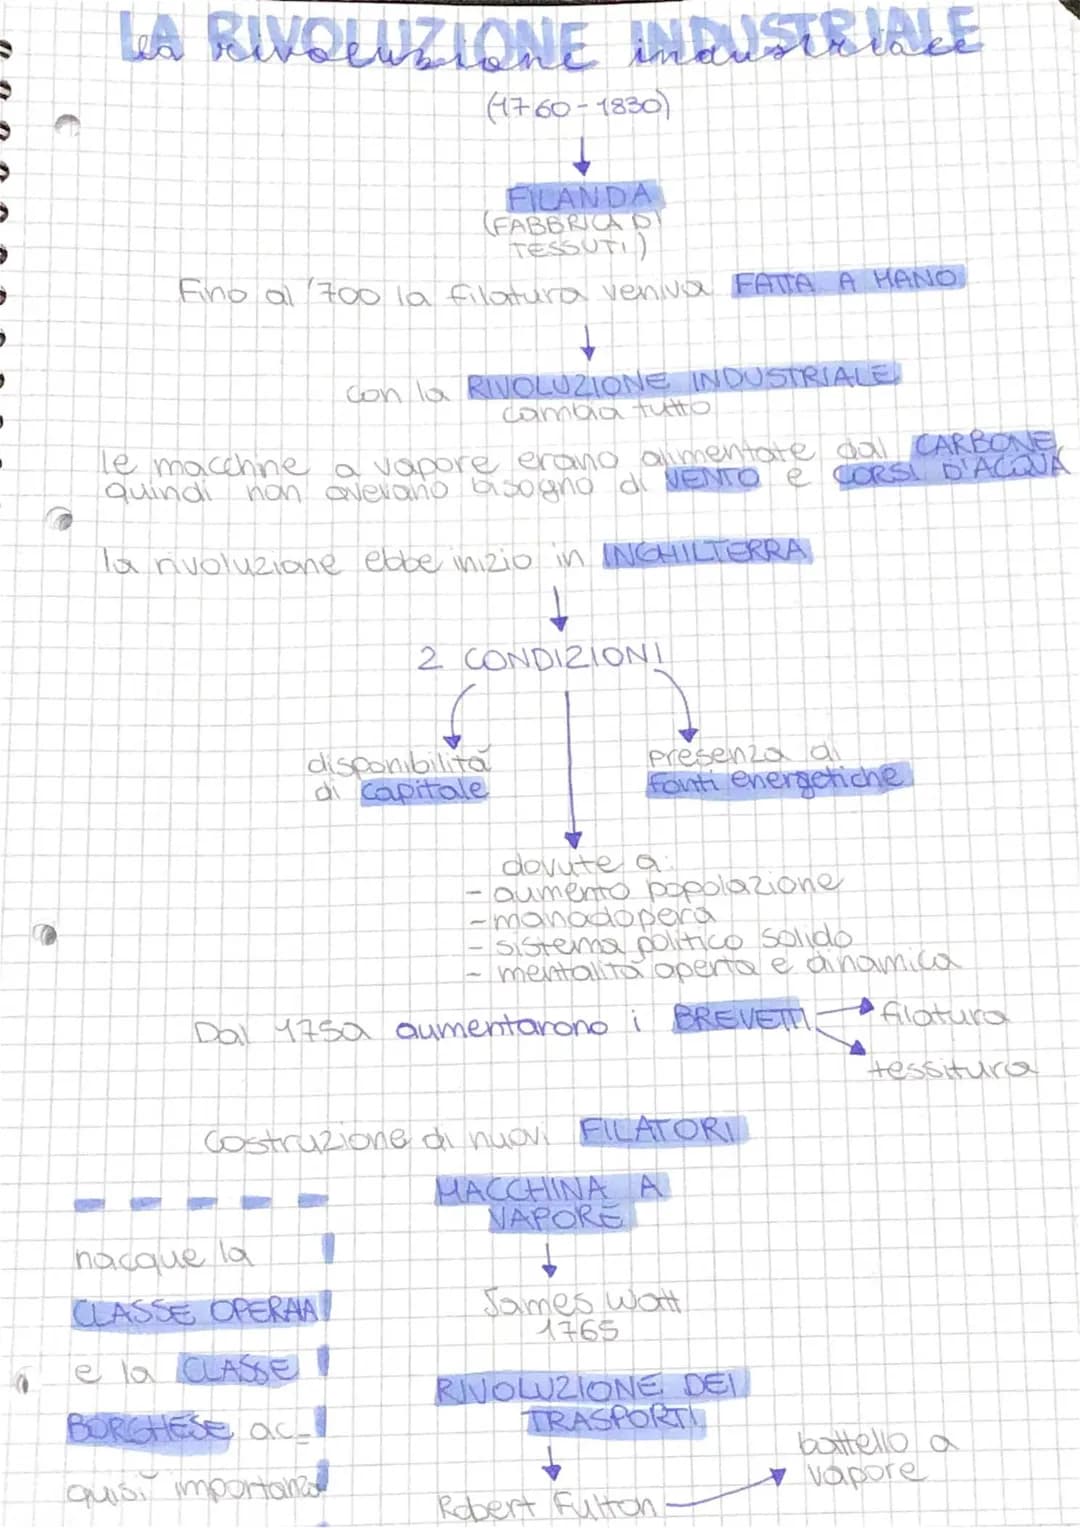 LA RIVOLUZIONE INDUSTRIALE
la rivoluzione industriale
(1760-1830)
FILANDA
(FABBRICA DI
TESSUTI)
Fino al '700 la filatura veniva FATTA A MANO
con la RIVOLUZIONE INDUSTRIALE
cambia tutto
le macchine a vapore erano alimentate dal CARBONE,
quindi non avevano bisogno di VENTO e CORSI D'ACQUA
la rivoluzione ebbe inizio in INGHILTERRA
2 CONDIZIONI
disponibilità
di capitale
presenza di
fonti energetiche
dovute a:
- aumento popolazione
- manodopera
- sistema politico solido
- mentalità aperta e dinamica
Dal 1750 aumentarono i BREVETTI
filatura
tessitura
costruzione di nuovi FILATORI
MACCHINA A
VAPORE
James Watt
1765
RIVOLUZIONE DEI
TRASPORTI
Robert Fulton
battello a
vapore
nacque la
CLASSE OPERAIA
e la CLASSE
BORGHESE ac-
quisì importanza